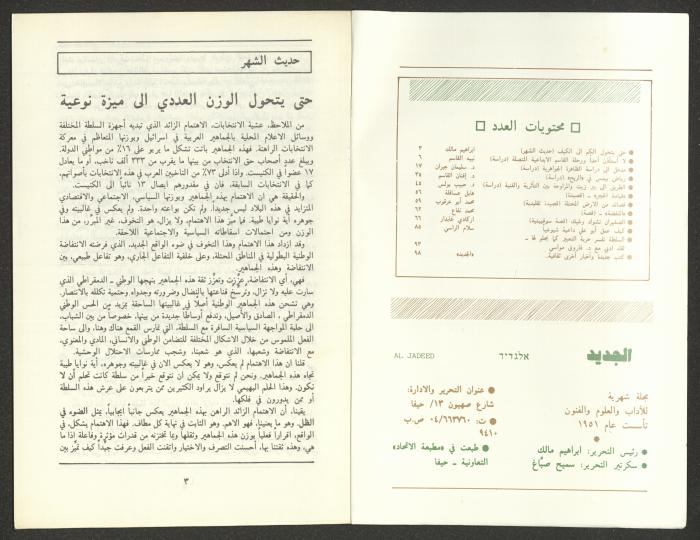 محتويات العدد
حتى يتحول الكم الى الكيف (حديث الشهر) ابراهيم مالك ٣
لا أستأذن أحداً ورحلة القاسم الابداعية المتصلة (دراسة) نبيه القاسم ٦
مدخل الى دراسة الظاهرة الجماهرية (دراسة) د. سليمان جبران ١٧
رياض بيدس في «الريح» (دراسة) د. إفنان القاسم ٣٥
الطريق الى بير زيت والمراوحة بين التأثرية والفنية (دراسة) د. حبيب بولس ٤٥
محمد أبو عرقوب ٥٩
محمد نفاع ٦٢
اركادي غايدار ٦٦
كيف عمل أبو علي داعية شيوعياً سلام الراسي ٨٥
السلطة تفسر حرية التعبير كما يحلو لها ـ
لقاء ادبي مع د. فاروق مواسي ٩٣
كتب جديدة وأخبار أخرى ثقافية. «الجديد» ٩٨
الجديد
אלג'דיד
AL JADEED
مجلة شهرية
للآداب والعلوم والفنون
تأسست عام ١٩٥١
رئيس التحرير: ابراهيم مالك
سكرتير التحرير: سميح صبّاغ
عنوان التحرير والادارة:
شارع صهيون ١٣/ حيفا
ت: ٠٤/٦٦٣٧٦٠ ص.ب
٩٤١٠
طبعت في «مطبعة الاتحاد»
التعاونية ـ حيفا
حديث الشهر
حتى يتحول الوزن العددي الى ميزة نوعية
من الملاحظ، عشية الانتخابات، الاهتمام الزائد الذي تبديه أجهزة السلطة المختلفة
ووسائل الاعلام المحلية بالجماهير العربية في اسرائيل وبوزنها المتعاظم في معركة
الانتخابات الراهنة. فهذه الجماهير باتت تشكل ما يربو على ١٦٪ من مواطني الدولة.
ويبلغ عدد أصحاب حق الانتخاب من بينها ما يقرب من ٣٣٣ ألف ناخب، او ما يعادل
١٧ عضوا في الكنيست. واذا أدلى ٧٣٪ من الناخبين العرب في هذه الانتخابات بأصواتهم،
كما في الانتخابات السابقة، فان في مقدورهم ايصال ١٣ نائباً الى الكنيست.
والحقيقة هي ان الاهتمام بهذه الجماهير وبوزنها السياسي، الاجتماعي والاقتصادي
المتزايد في هذه البلاد ليس جديداً. ولم تكن بواعثه واحدة. ولم يعكس في غالبيته وفي
جوهره أية نوايا طيبة. فما ميز هذا الاهتمام، ولا يزال، هو التخوف، غير المبرر، من هذا
الوزن ومن احتمالات اسقاطاته السياسية والاجتماعية اللاحقة.
وقد ازداد هذا الاهتمام وهذا التخوف في ضوء الواقع الجديد، الذي فرضته الانتفاضة
الوطنية البطولية في المناطق المحتلة، وعلى خلفية التفاعل الجاري، وهو تفاعل طبيعي، بين
الانتفاضة وهذه الجماهير.
فهي، أي الانتفاضة، عزّزت وتعزّز ثقة هذه الجماهير بنهجها الوطني ـ الدمقراطي الذي
سارت عليه ولا تزال، وترسّخ قناعتها بالنضال وضرورته وجدواه وحتمية تكلله بالانتصار.
وهي تشحن هذه الجماهير الوطنية أصلاً في غالبيتها الساحقة بمزيد من الحس الوطني
الدمقراطي، الصادق والأصيل، وتدفع أوساطاً جديدة من بينها، خصوصاً من بين الشباب،
الى حلبة المواجهة السياسية السافرة مع السلطة، التي تمارس القمع هناك وهنا، والى ساحة
الفعل الملموس من خلال الاشكال المختلفة للتضامن الوطني والانساني، المادي والمعنوي،
مع الانتفاضة وشعبها، الذي هو شعبنا، وشجب ممارسات الاحتلال الوحشية.
قلنا ان هذا الاهتمام لم يعكس، وهو لا يعكس الان في غالبيته وجوهره، أية نوايا طيبة
تجاه هذه الجماهير. ونحن لم نتوقع ولا يمكن ان نتوقع خيراً من سلطة كانت تحلم أن لا
نكون. وهذا الحلم البهيمي لا يزال يراود الكثيرين ممن يتربعون على عرش هذه السلطة
أو ممن يدورون في فلكها.
يقينا، أن الاهتمام الزائد الراهن بهذه الجماهير يعكس جانباً ايجابياً، يمثل الضوء في
الظل. وهو ما يعنينا، فهو الاهم، وهو الثابت في نهاية كل مطاف. فهذا الاهتمام يشكل، في
الواقع، اقراراً فعلياً بوزن هذه الجماهير وثقلها وبما تختزنه من قدرات مؤثرة وفاعلة اذا ما
هي، وهذه ثقتنا بها، أحسنت التصرف والاختيار واتقنت الفعل وعرفت جيداً كيف تميّز بين
٣